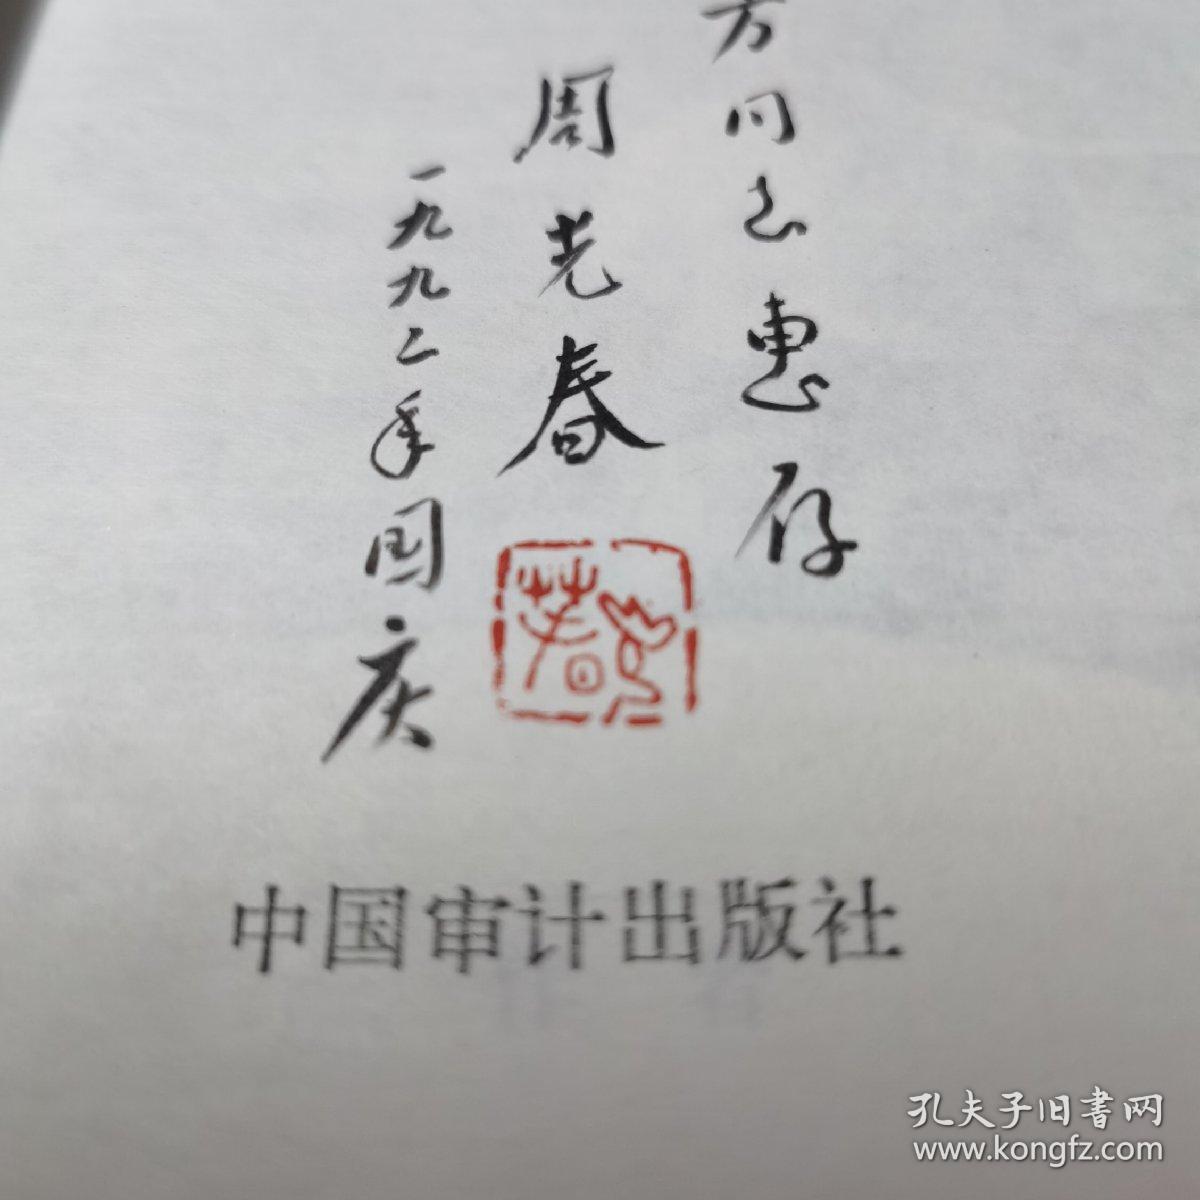 方同志惠存
周光春
一九九二年国庆
中国审计出版社
孔夫子旧书网
www.kongfz.com